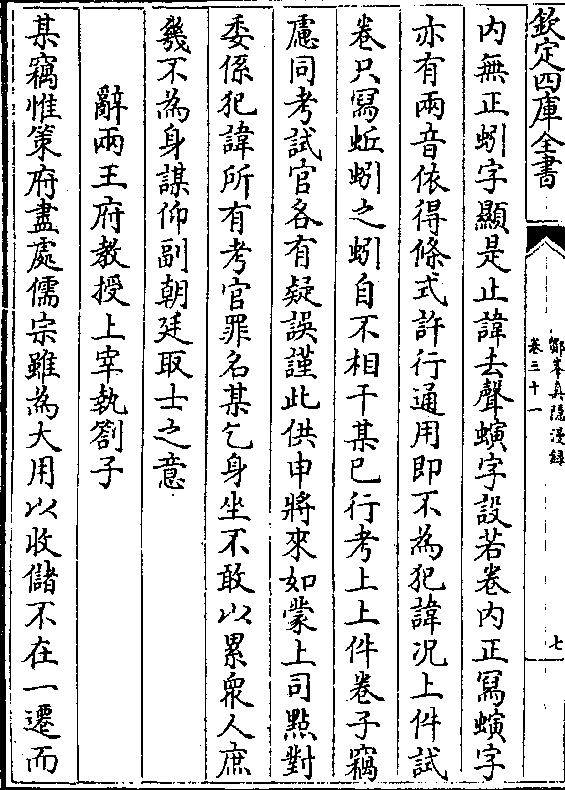 欽定四庫全書
鄮峯真隱漫録
卷三十一
七
内無正蚓字顯是止諱去聲螾字設若卷内正寫螾字
亦有兩音依得條式許行通用即不為犯諱况上件試
卷只寫蚯蚓之蚓自不相干某已行考上上件卷子竊
慮同考試官各有疑誤謹此供申將來如蒙上司點對
委係犯諱所有考官罪名某乞身坐不敢以累衆人庶
幾不為身謀仰副朝廷取士之意
辭兩王府教授上宰執劄子
某竊惟策府盡處儒宗雖為大用以收儲不在一遷而